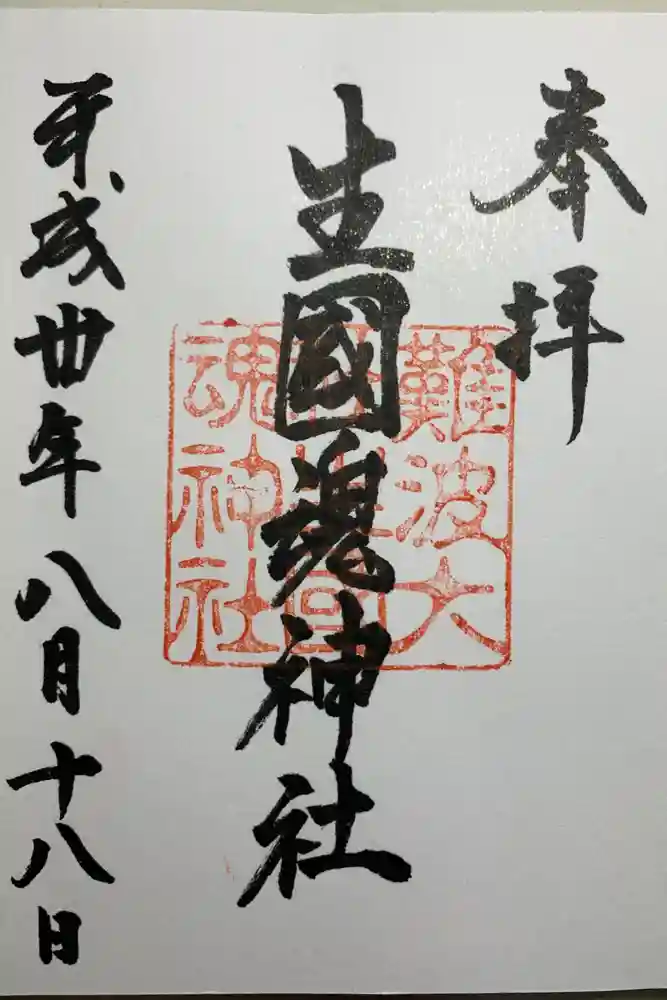 奉拝
生國魂神社
難波大
社生國
魂神社
平成丗年八月十八日